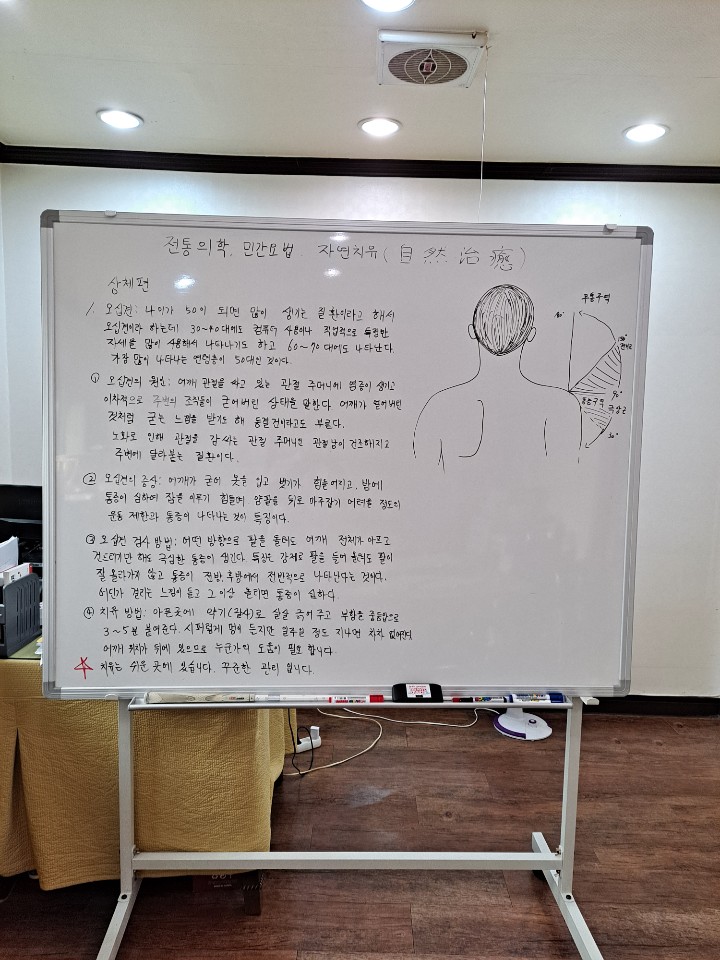 전통의학. 민간요법. 자연치유(自然治癒)
상체편
1. 오십견: 나이가 50이 되면 많이 생기는 질환이라고 해서
오십견이라 하는데 30~40대에도 컴퓨터 사용이나 직업적으로 특정한
자세를 많이 사용해서 나타나기도 하고 60~70대에도 나타난다.
가장 많이 나타나는 연령층이 50대인 것이다.
① 오십견의 원인: 어깨 관절을 싸고 있는 관절 주머니에 염증이 생기고
이차적으로 주변의 조직들이 굳어버린 상태를 말한다. 어깨가 얼어버린
것처럼 굳는 느낌을 받기도 해 동결견이라고도 부른다.
노화로 인해 관절을 감싸는 관절 주머니인 관절낭이 건조해지고
주변에 달라붙는 질환이다.
② 오십견의 증상: 어깨가 굳어 옷을 입고 벗기가 힘들어지고, 밤에
통증이 심하여 잠을 이루기 힘들며 양팔을 뒤로 마주잡기 어려울 정도의
운동 제한과 통증이 나타나는 것이 특징이다.
③ 오십견 검사 방법: 어떤 방향으로 팔을 돌려도 어깨 전체가 아프고
건드리기만 해도 극심한 통증이 생긴다. 특징은 강제로 팔을 들어 올려도 팔이
잘 올라가지 않고 통증이 전방, 후방에서 전반적으로 나타난다는 것이다.
어딘가 걸리는 느낌이 듣고 그 이상 올리면 통증이 심하다.
④ 치유 방법: 아픈곳에 약기(괄사)로 살살 긁어 주고 부항을 중중압으로
3~5분 붙여준다. 시퍼렇게 멍이 든지만 일주일 정도 지나면 차차 없어진다
어깨 위치가 뒤에 있으므로 누군가의 도움이 필요 합니다.
치유는 쉬운 곳에 있습니다. 꾸준한 관리 입니다.
무통구역
180°
120°
90°
통증구역
극상근
30°